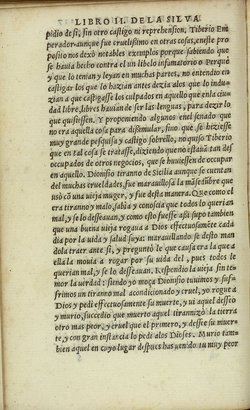 LIBRO II. DE LA SILVA
pidio desi, sin otro castigo ni reprehension, Tiberio Em
perador aunque fue cruelissimo en otras cosas, en este pro
posito nos dexò notables exemplos porque sabiendo que
se hauia hecho contra el un libelo infamatorio o Perque
y que lo tenian y leyan en muchas partes, no entendio en
castigar los que lo hazian antes dezia alos que lo indu-
zian a que castigasse los culpados en aquello que enla ciu-
dad libre, libres hauian de ser las lenguas, para dezir lo
que quisiessen. Y proponiendo algunos enel senado que
no era aquella cosa para dissimular, sino que se hiziesse
muy grande pesquisa y castigo sobrello, no quiso Tiberio
que en tal cosa se tratasse, diziendo que no estaua tan des
occupado de otros negocios, que se huuiessen de occupar
en aquello. Dionisio tiranno de Sicilia aunque se cuentan
del muchas crueldades, fue marauillosa la mansedumbre que
usò cō una uieja muger, y fue desta manera. Que como el
era tiranno y malo, sabia y conoscia que todos lo querian
mal, y se lo desseauan, y como esto fuesse assi supo tambien
que una buena uieja rogaua a Dios effectuosamente cada
dia por la uida y salud suya: marauillando se desto man
dola traer ante si, y preguntò le que causa era la que a
ella la mouia a rogar por su uida del, pues todos le
querian mal, y se lo desseauan. Respondio la uieja sin te-
mor la uerdad: siendo yo moça Dionisio tuuimos y suf-
frimos un tiranno mal acondicionado y cruel, yo rogue a
Dios y pedi effectuosamente su muerte, y ui aquel desseo
y murio, succedio que muerto aquel tirannizò la tierra
otro mas peor, y cruel que el primero, y dessee su muer-
te, y con gran instancia lo pedi alos Dioses. Murio tam-
bien aquel en cuyo lugar despues has uenido tu muy peor